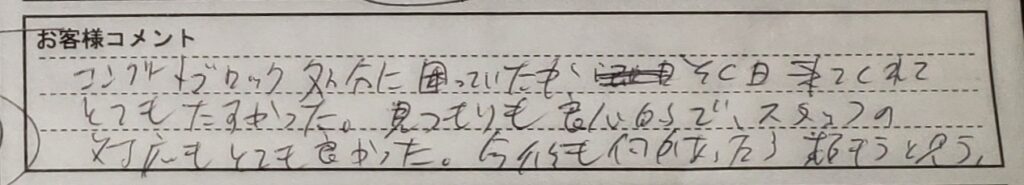 お客様コメント
コンクリートブロック 処分に困っていたが、その日来てくれて
とてもたすかった。見つもりも良心的で、スタッフの
対応もとても良かった。今後も何かあったら頼もうと思う。